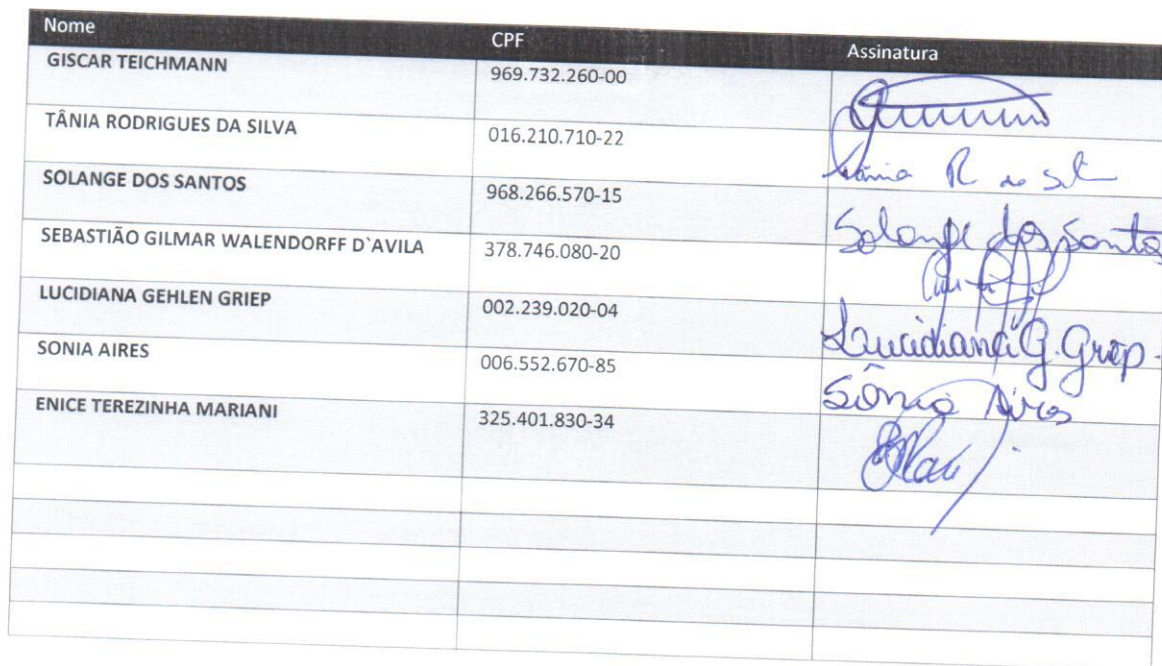 Nome CPF Assinatura
GISCAR TEICHMANN 969.732.260-00
TÂNIA RODRIGUES DA SILVA 016.210.710-22 Tânia R da Sil
SOLANGE DOS SANTOS 968.266.570-15 Solange dos Santos
SEBASTIÃO GILMAR WALENDORFF D`AVILA 378.746.080-20
LUCIDIANA GEHLEN GRIEP 002.239.020-04 Lucidiana G. Griep.
SONIA AIRES 006.552.670-85 Sônia Aires
ENICE TEREZINHA MARIANI 325.401.830-34